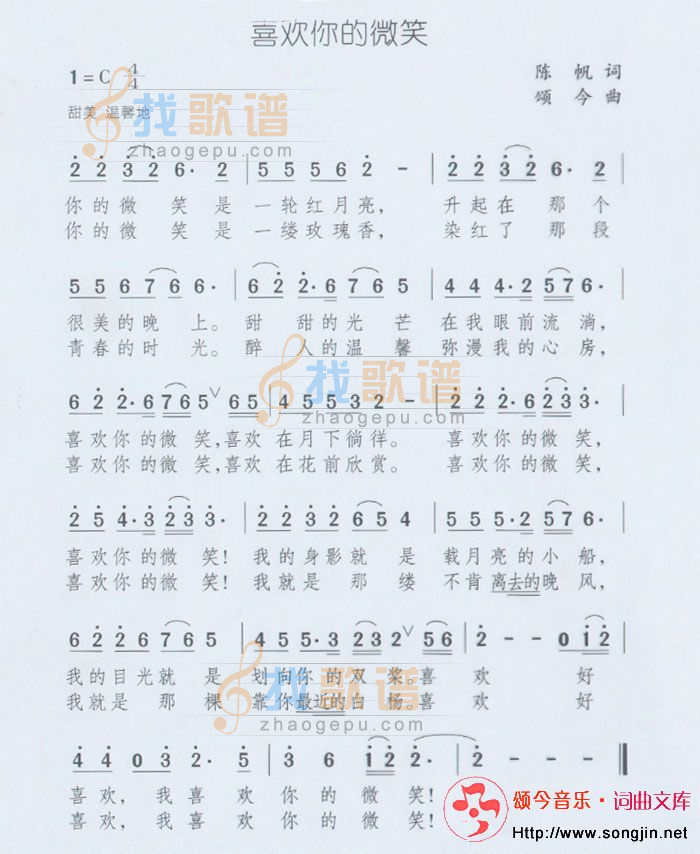 喜欢你的微笑
1=C 4/4
陈 帆 词
甜美 温馨地
颂 今 曲
找歌谱
zhaogepu.com
2 2 3 2 6· 2 | 5 5 5 6 2 - | 2 2 3 2 6· 2 |
你的微 笑是 一轮红月亮, 升起在 那个
你的微 笑是 一缕玫瑰香, 染红了 那段
5 5 6 7 6 6· | 6 2 2·6 7 6 5 | 4 4 4·2 5 7 6· |
很美的晚 上。 甜 甜的光 芒 在我眼前流 淌,
青春的时 光。 醉 人的温 馨 弥漫我的心 房,
找歌谱
zhaogepu.com
6 2 2·6 7 6 5 ∨ 6 5 | 4 5 5 5 3 2 - | 2 2 2·6 2 3 3· |
喜欢你的微 笑,喜欢 在月下徜徉。 喜欢你的微 笑,
喜欢你的微 笑,喜欢 在花前欣赏。 喜欢你的微 笑,
2 5 4·3 2 3 3· | 2 2 3 2 6 5 4 | 5 5 5·2 5 7 6· |
喜欢你的微 笑! 我的身影就 是 载月亮的小 船,
喜欢你的微 笑! 我就是 那 缕 不肯离去的晚 风,
6 2 2 6 7 6 5 | 4 5 5·3 2 3 2 ∨ 5 6 | 2 - - 0 1 2 |
我的目光就 是 划向你的 双 桨。喜 欢 好
我就是 那 棵 靠你最近的白 杨。喜 欢 好
找歌谱
zhaogepu.com
4 4 0 3 2· 5 | 3 6 1 2 2· | 2 - - - ‖
喜 欢, 我 喜 欢 你 的 微 笑!
喜 欢, 我 喜 欢 你 的 微 笑!
颂今音乐·词曲文库
Http://www.songjin.net